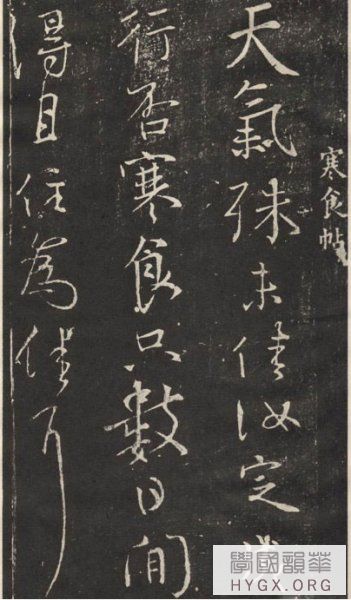 寒食帖
天氣殊未佳汝定成
行否寒食只數日間
得且住為佳耳
華韻國學
HYGX.ORG